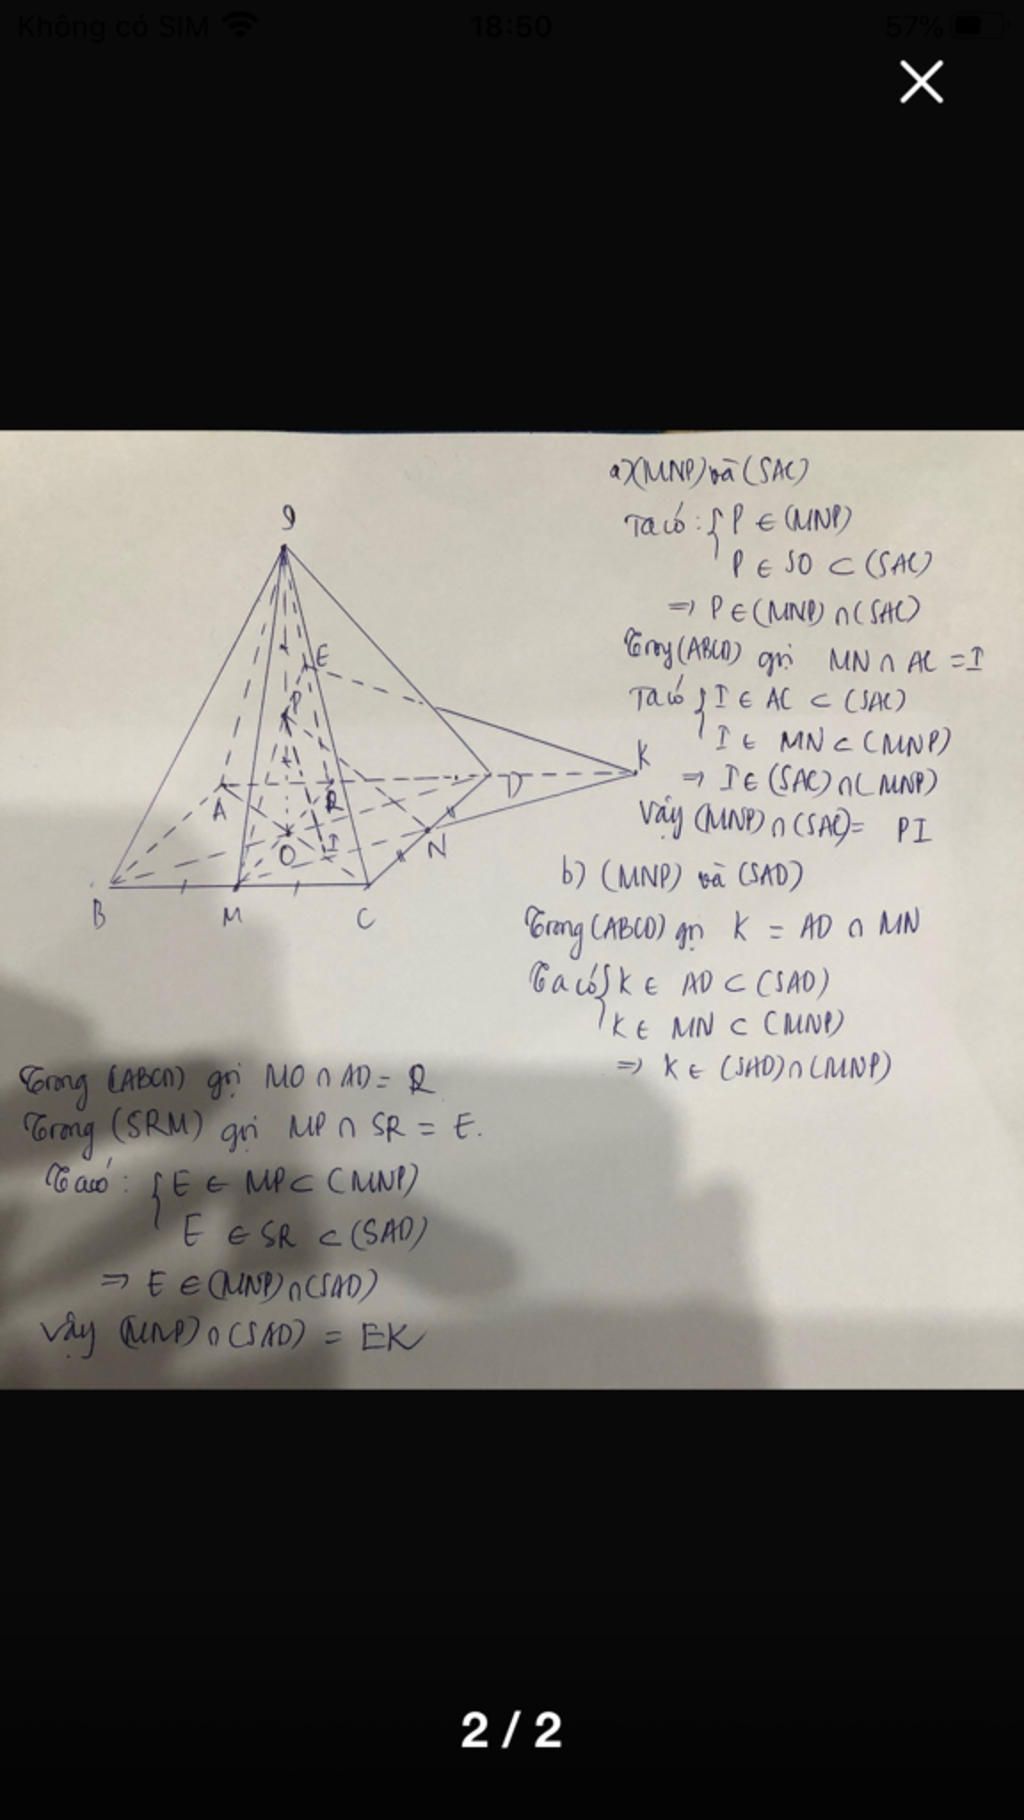 Không có SIM 18:50 57%
a) (MNP) và (SAC)
Ta có : { P ∈ (MNP)
P ∈ SO ⊂ (SAC)
=> P ∈ (MNP) ∩ (SAC)
Trong (ABCD) gọi MN ∩ AC = I
Ta có { I ∈ AC ⊂ (SAC)
I ∈ MN ⊂ (MNP)
=> I ∈ (SAC) ∩ (MNP)
Vậy (MNP) ∩ (SAC) = PI
b) (MNP) và (SAD)
Trong (ABCD) gọi K = AD ∩ MN
Ta có { K ∈ AD ⊂ (SAD)
K ∈ MN ⊂ (MNP)
=> K ∈ (SAD) ∩ (MNP)
S
E
P
K
A
R
D
O
I
N
B
M
C
Trong (ABCD) gọi MO ∩ AD = R
Trong (SRM) gọi MP ∩ SR = E.
Ta có : { E ∈ MP ⊂ (MNP)
E ∈ SR ⊂ (SAD)
=> E ∈ (MNP) ∩ (SAD)
Vậy (MNP) ∩ (SAD) = EK
2 / 2